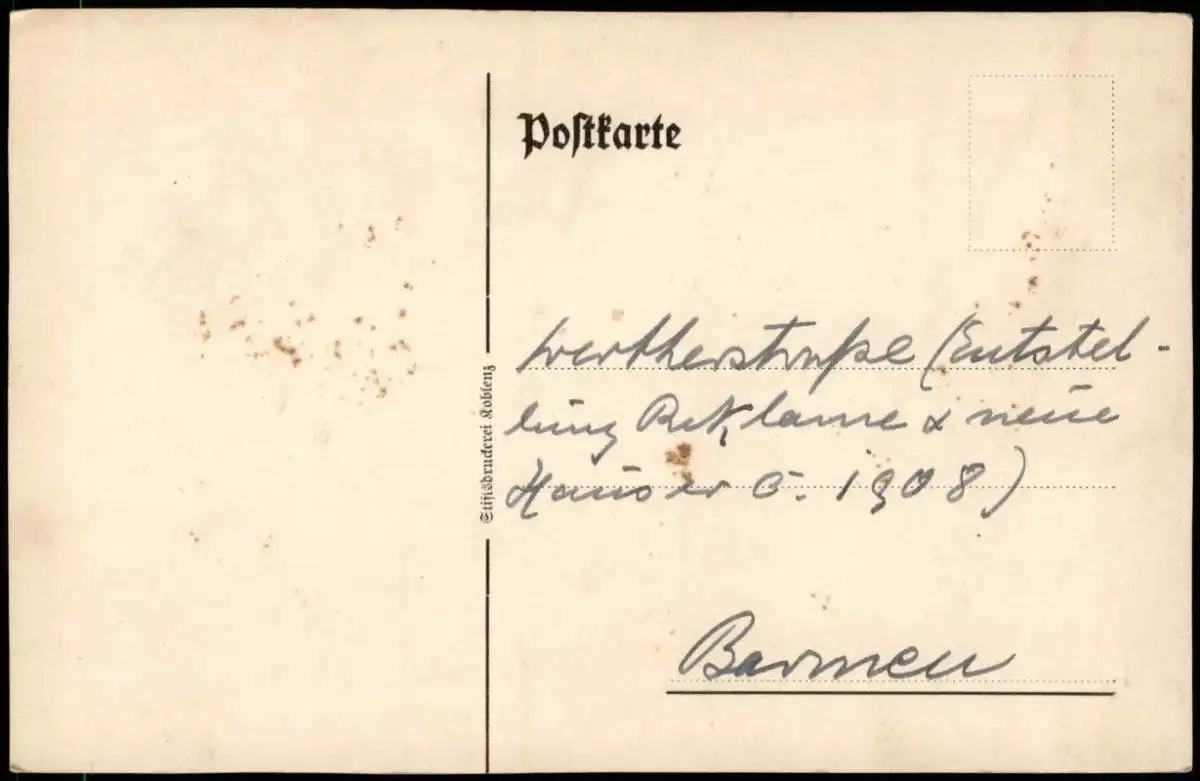 Postkarte
Stiftsdruckerei Koblenz
Wertherstraße (Entstel-
lung Reklame & neue
Häuser c. 1908)
Barmen